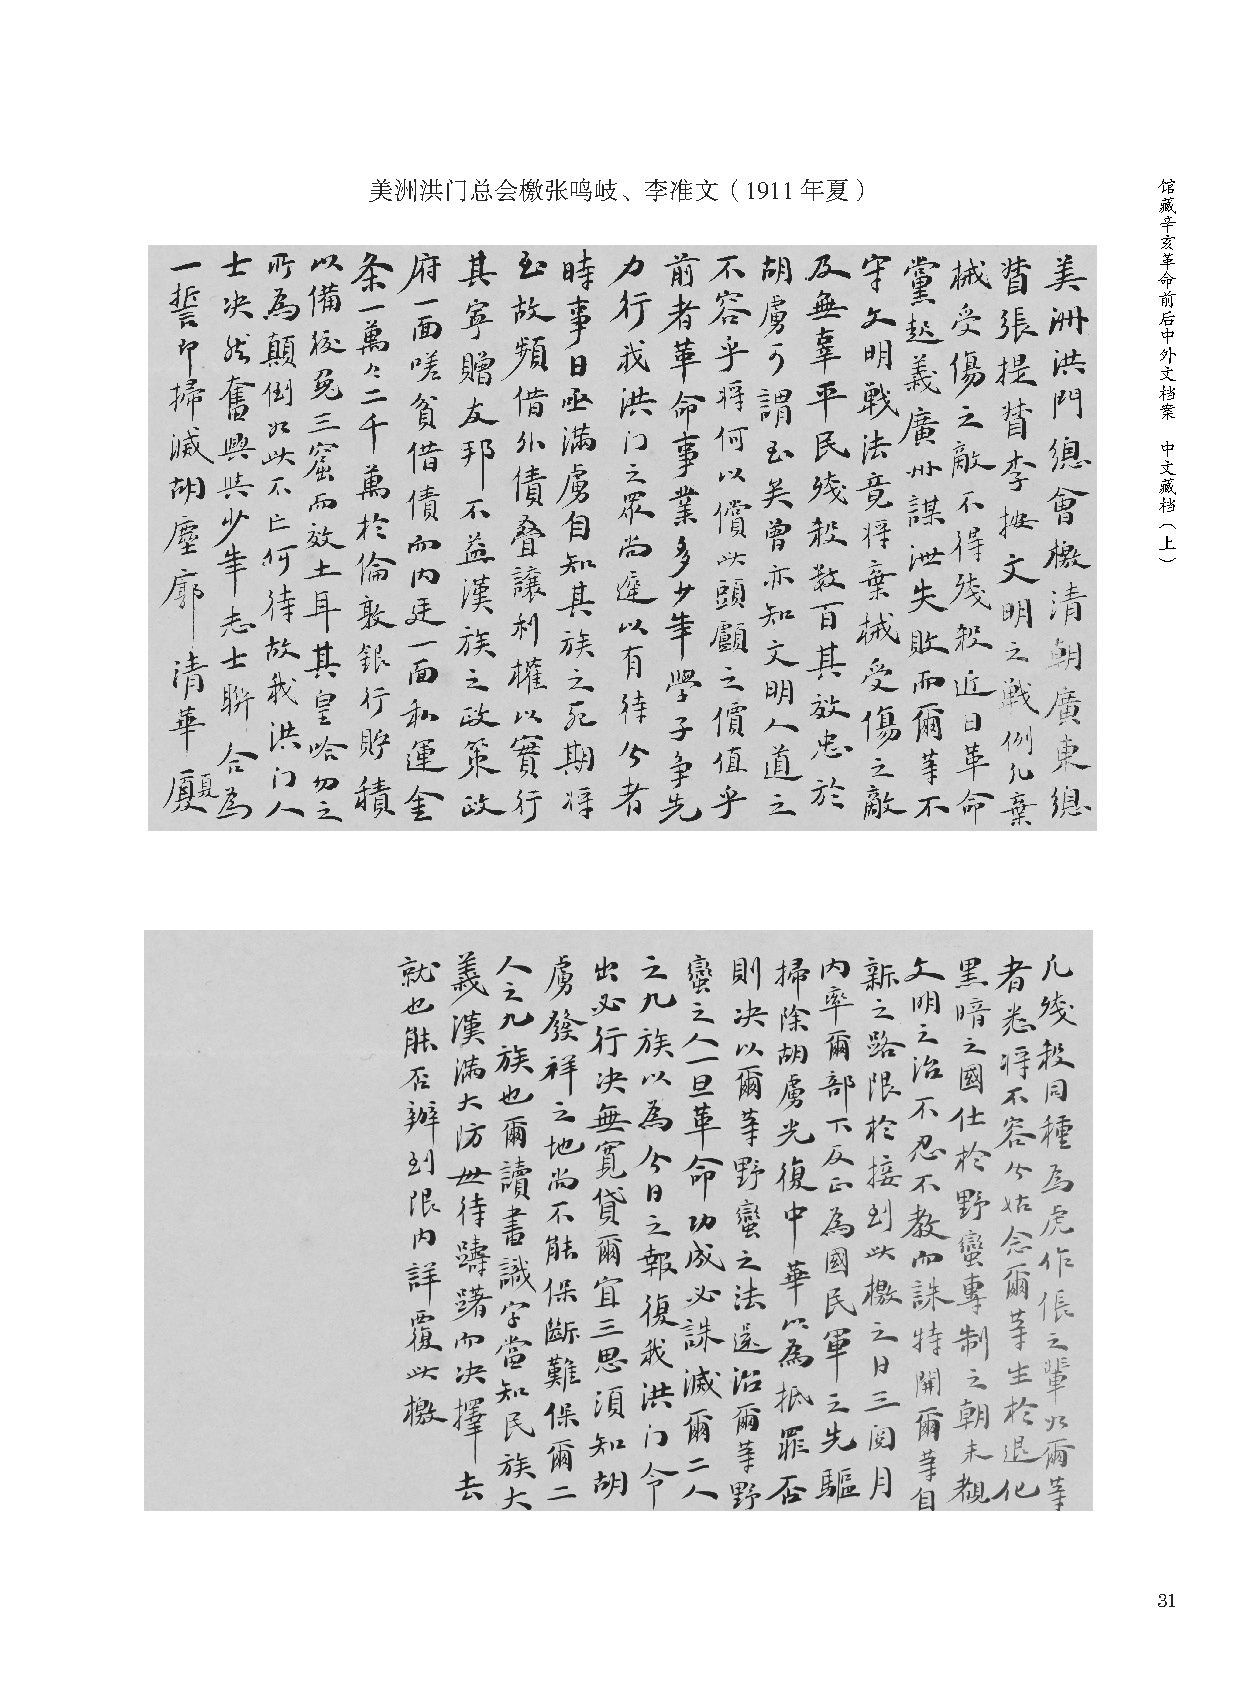 美洲洪门总会檄张鸣岐、李准文（1911年夏）
馆藏辛亥革命前后中外文档案　中文藏档（上）
美洲洪門總會檄清朝廣東總
督張提督李按文明之戰例凡棄
械受傷之敵不得殘殺近日革命
黨起義廣州謀洩失敗而爾等不
守文明戰法竟將棄械受傷之敵
及無辜平民殘殺數百其放忠於
胡虜可謂至矣曾亦知文明人道之
不容乎將何以償此頭顱之價值乎
前者革命事業多少年學子爭先
力行我洪门之眾尚遲以有待今者
時事日亟滿虜自知其族之死期将
至故頻借外債叠讓利權以實行
其寧贈友邦不益漢族之政策政
府一面嗟貧借債而内廷一面私運金
条一萬々二千萬於倫敦銀行貯積
以備狡兔三窟而效土耳其皇哈勿之
所為顛倒如此不亡何待故我洪门人
士决然奮興与少年志士聨合為
一誓即掃滅胡塵廓清華廈
凡殘殺同種為虎作倀之輩如爾等
者悉将不容今姑念爾等生於退化
黑暗之國仕於野蠻專制之朝未覩
文明之治不忍不教而誅特開爾等自
新之路限於接到此檄之日三閱月
内率爾部下反正為國民軍之先驅
掃除胡虜光復中華以為抵罪否
則决以爾等野蠻之法還治爾等野
蠻之人一旦革命功成必誅滅爾二人
之九族以為今日之報復我洪门令
出必行决無寛貸爾宜三思須知胡
虜發祥之地尚不能保斷難保爾二
人之九族也爾讀書識字當知民族大
義漢滿大防毋待躊躇而决擇去
就也能否辦到限内詳覆此檄
31